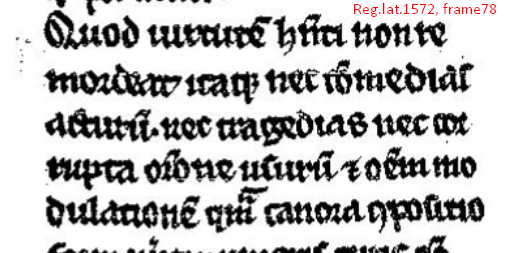 Reg.lat.1572, frame78
Quod uirtutē hn̄ti non te
mordeat itaqꝫ nec cōmedias
acturū. nec tragedias nec cor
rupta or̄one usurū ⁊ oēm mo
dulationē qm̄ canora ꝯpositio